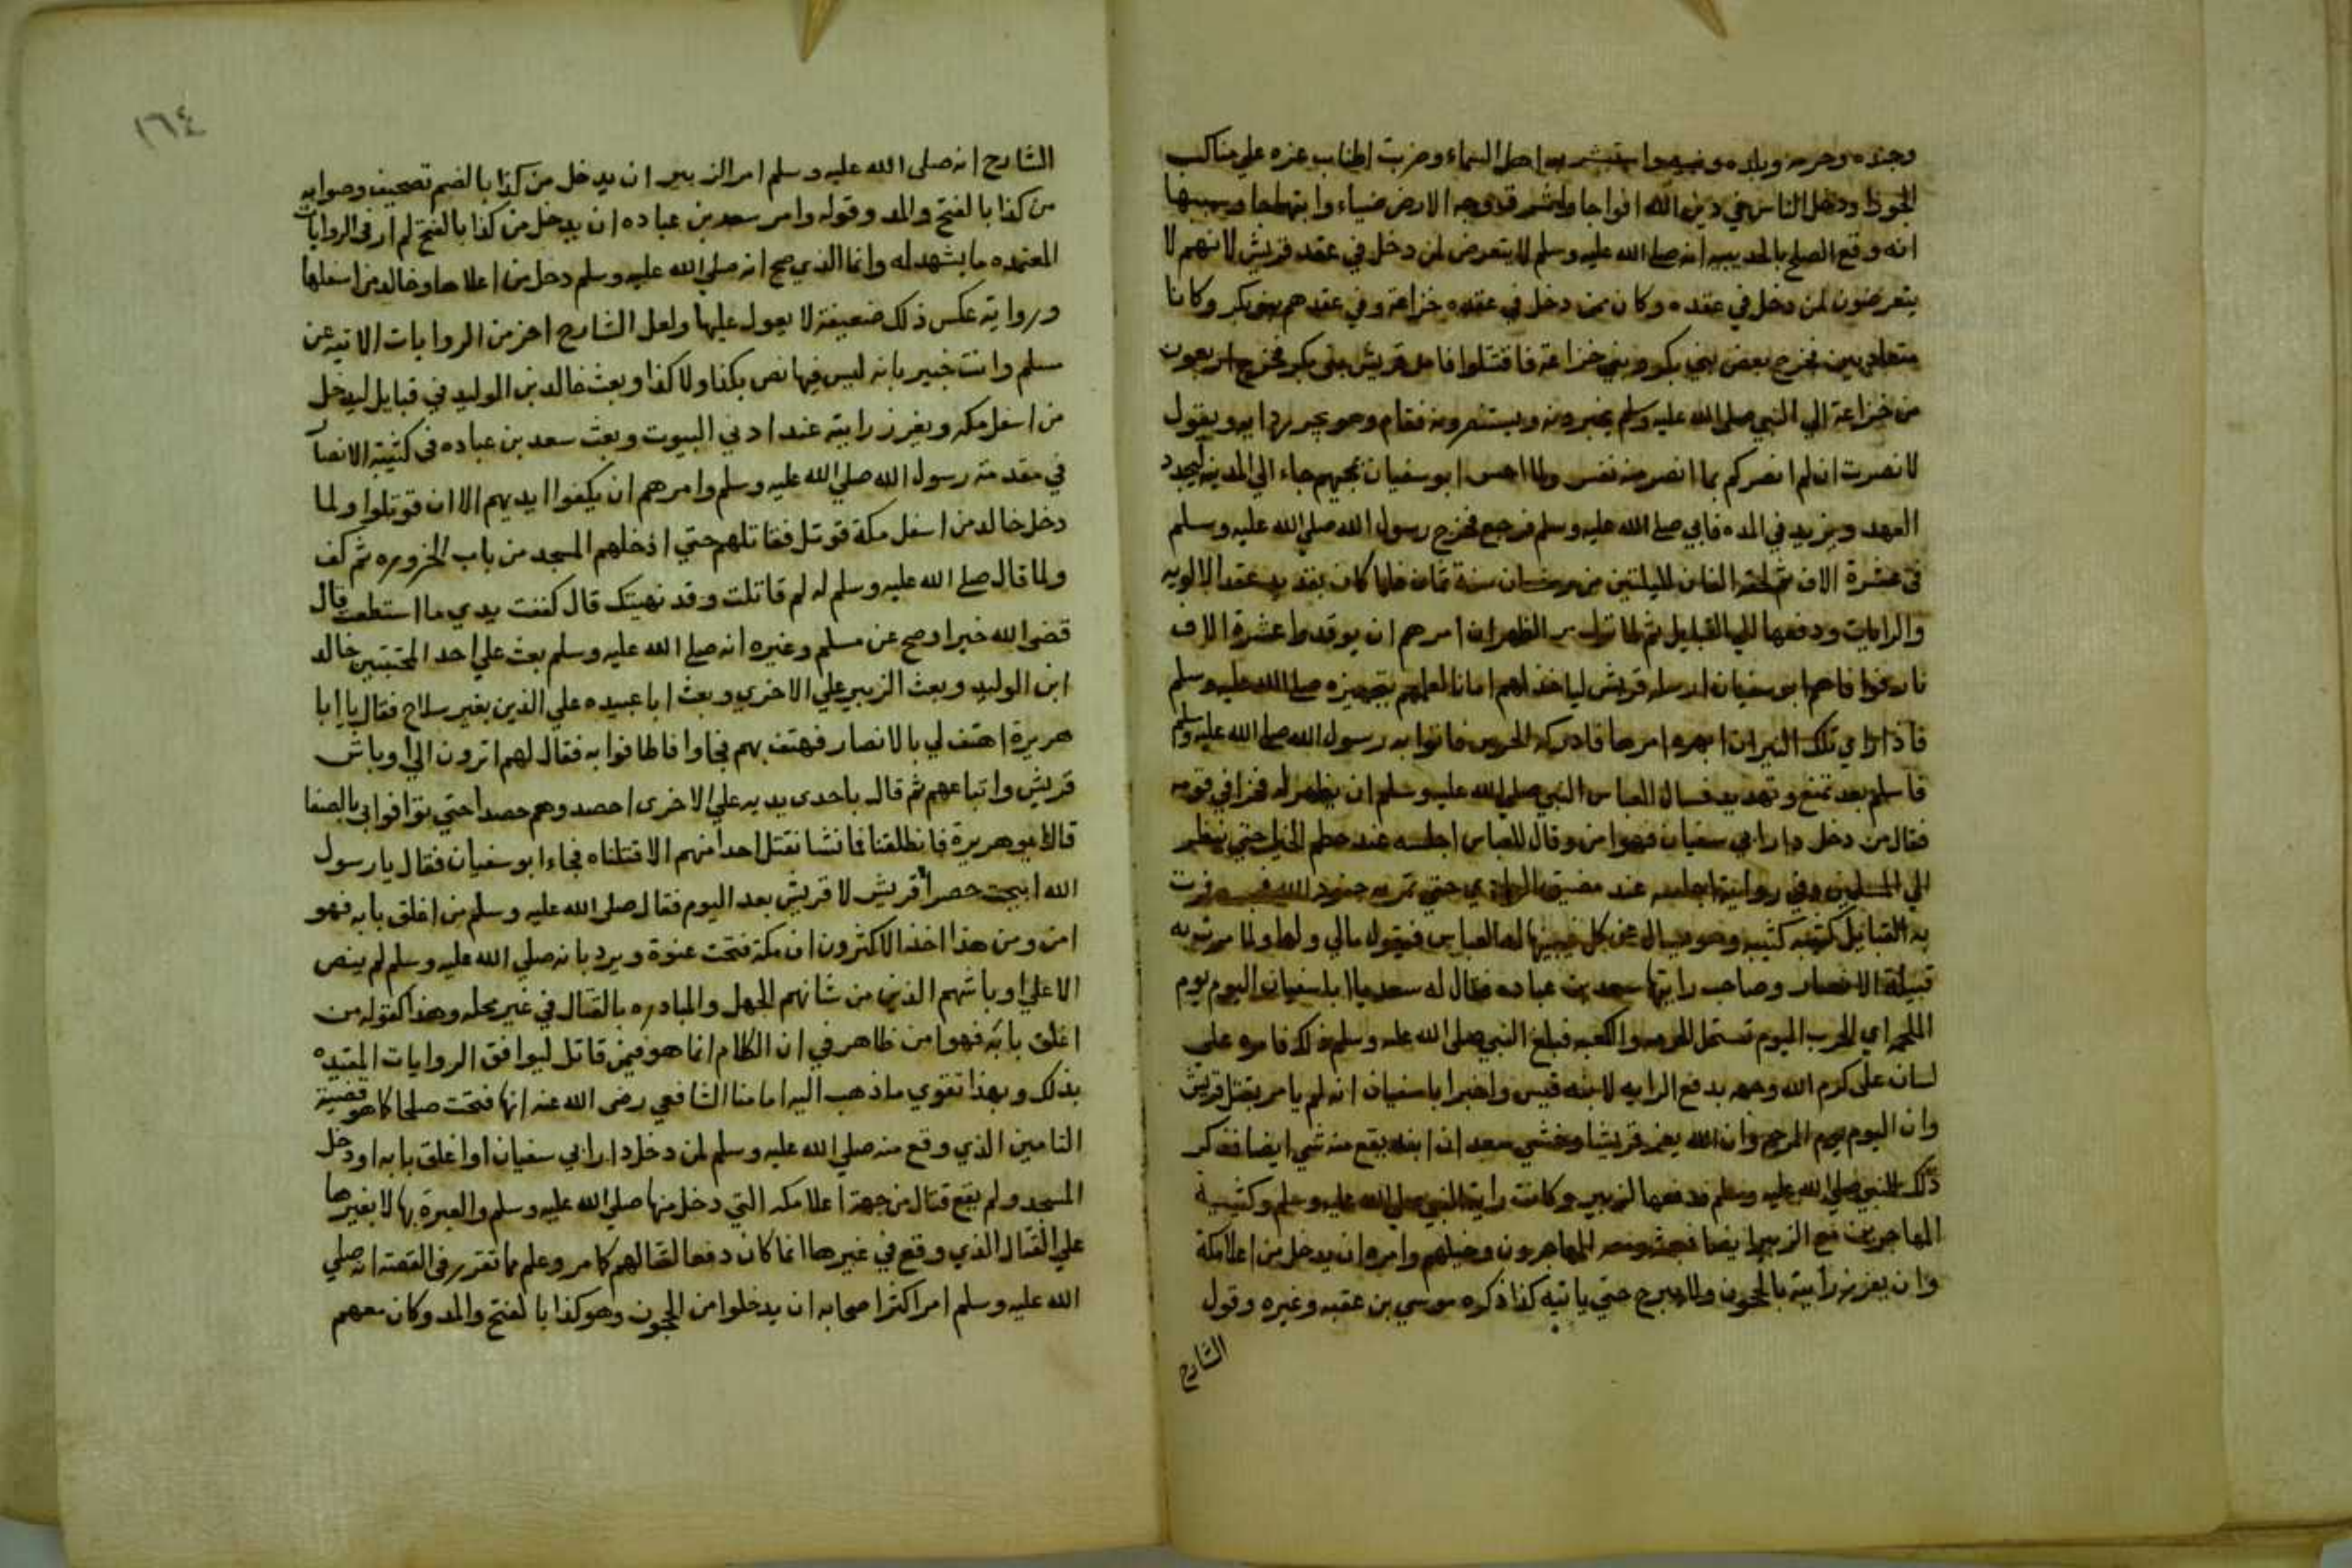 وجنده وحرمه وبلده واستبشر به اهل السماء وضربت اطناب عزه علي مناكب
الجوزا ودخل الناس في دين الله افواجا واشرق وجه الارض ضياء وابتهاجا وسببها
انه وقع الصلح بالحديبيه انه صلي الله عليه وسلم لا يتعرض لمن دخل في عقد قريش لانهم لا
يتعرضون لمن دخل في عقده وكان ممن دخل في عقده خزاعة وفي عقدهم بنو بكر وكانا
متعاديين فخرج بعض بني بكر وبني خزاعة فاقتتلوا فامد قريش بني بكر فخرج اربعون
من خزاعة الي النبي صلي الله عليه وسلم يخبرونه ويستنصرونه فقام وهو يجر ردايه ويقول
لا نصرت ان لم انصركم بما انصر منه نفسي ولما احس ابو سفيان بمجيهم جاء الي المدينه ليجدد
العهد ويزيد في المده فابي صلي الله عليه وسلم فرجع فخرج رسول الله صلي الله عليه وسلم
في عشرة الاف ثم لحقه الفان لليلتين من رمضان سنة ثمان فلما كان بقديد عقد الالويه
والرايات ودفعها الي القبايل ثم لما نزل مر الظهران امرهم ان يوقدوا عشرة الاف
نار فوافاهم ابو سفيان ارسله قريش لياخذ لهم امانا لعلمهم بتجهيزه صلي الله عليه وسلم
فاذا راي تلك النيران ابهره امرها فادركه الحرس فاتوا به رسول الله صلي الله عليه وسلم
فاسلم بعد تمنع وتهديد فسال العباس النبي صلي الله عليه وسلم ان يظهر له فخرا في قومه
فقال من دخل دار ابي سفيان فهو امن وقال للعباس اجلسه عند حطم الخيل حتي ينظر
الي المسلمين وفي رواية اجلسه عند مضيق الوادي حتي تمر به جنود الله فمرت
به القبايل كتيبه كثيبه وهو يسال عن كل فيجيبها له العباس فيقول مالي ولها ولما مرت به
قبيلة الانصار وصاحب رايتها سعد بن عباده فقال له سعد يا ابا سفيان اليوم يوم
الملحمه اي الحرب اليوم تستحل الحرمه والكعبه فبلغ النبي صلي الله عليه وسلم ذلك فامره علي
لسان علي كرم الله وجهه بدفع الرايه لابنه قيس واخبر ابا سفيان انه لم يامر بقتل قريش
وان اليوم يوم المرحمه وان الله يعز قريشا وخشي سعد ان ابنه يقع منه شي ايضا فذكر
ذلك للنبي صلي الله عليه وسلم فدفعها للزبير وكانت راية النبي صلي الله عليه وسلم وكتيبة
المهاجرين مع الزبير ايضا فبعثه ومعه المهاجرون وخيلهم وامره ان يدخل من اعلا مكة
وان يغرز رايته بالحجون ولا يبرح حتي ياتيه كذا ذكره موسي بن عقبه وغيره وقول
الشارح
١٦٤
الشارح انه صلي الله عليه وسلم امر الزبير ان يدخل من كذا بالضم تصحيف وصوابه
من كذا بالفتح والمد وقوله وامر سعد بن عباده ان يدخل من كذا بالفتح لم ار في الروايات
المعتمده ما يشهد له وانما الذي صح انه صلي الله عليه وسلم دخل من اعلاها وخالد من اسفلها
وروايته عكس ذلك ضعيفة لا يعول عليها ولعل الشارح اخذ من الروايات الاتيه عن
مسلم وانت خبير بانه ليس فيها نص بكذا ولا كذا وبعث خالد بن الوليد في قبايل ليدخل
من اسفل مكه ويغرز رايته عند ادني البيوت وبعث سعد بن عباده في كتيبة الانصار
في مقدمة رسول الله صلي الله عليه وسلم وامرهم ان يكفوا ايديهم الا ان قوتلوا ولما
دخل خالد من اسفل مكة قوتل فقاتلهم حتي ادخلهم المسجد من باب الخزوره ثم كف
ولما قال صلي الله عليه وسلم له لم قاتلت وقد نهيتك قال كففت يدي ما استطعت قال
قضي الله خيرا وصح عن مسلم وغيره انه صلي الله عليه وسلم بعث علي احد المجنبتين خالد
ابن الوليد وبعث الزبير علي الاخري وبعث ابا عبيده علي الذين بغير سلاح فقال يا ابا
هريرة اهتف لي بالانصار فهتف بهم فجاوا فاطافوا به فقال لهم اترون الي اوباش
قريش واتباعهم ثم قال باحدي يديه علي الاخري احصدوهم حصدا حتي توافوا بي بالصفا
قال ابو هريرة فانطلقنا فما نشا نقتل احدا منهم الا قتلناه فجاء ابو سفيان فقال يا رسول
الله ابيحت خصرا قريش لا قريش بعد اليوم فقال صلي الله عليه وسلم من اغلق بابه فهو
امن ومن هذا اخذ الاكثرون ان مكة فتحت عنوة ويرد بانه صلي الله عليه وسلم لم ينص
الا علي اوباشهم الذين من شانهم الجهل والمبادره بالقتال في غير محله وهذا كقوله من
اغلق بابه فهو امن ظاهر في ان الكلام انما هو فيمن قاتل ليوافق الروايات المقيده
بذلك وبهذا تقوي ما ذهب اليه امامنا الشافعي رضي الله عنه انها فتحت صلحا كما هو قضية
التامين الذي وقع منه صلي الله عليه وسلم لمن دخل دار ابي سفيان او اغلق بابه او دخل
المسجد ولم يقع قتال من جهة اعلا مكه التي دخل منها صلي الله عليه وسلم والعبرة بها لا بغيرها
علي القتال الذي وقع في غيرها انما كان دفعا لقتالهم كما مر وعلم مما تقرر في القصة انه صلي
الله عليه وسلم امر اكثر اصحابه ان يدخلوا من الحجون وهو كذا بالفتح والمد وكان معهم